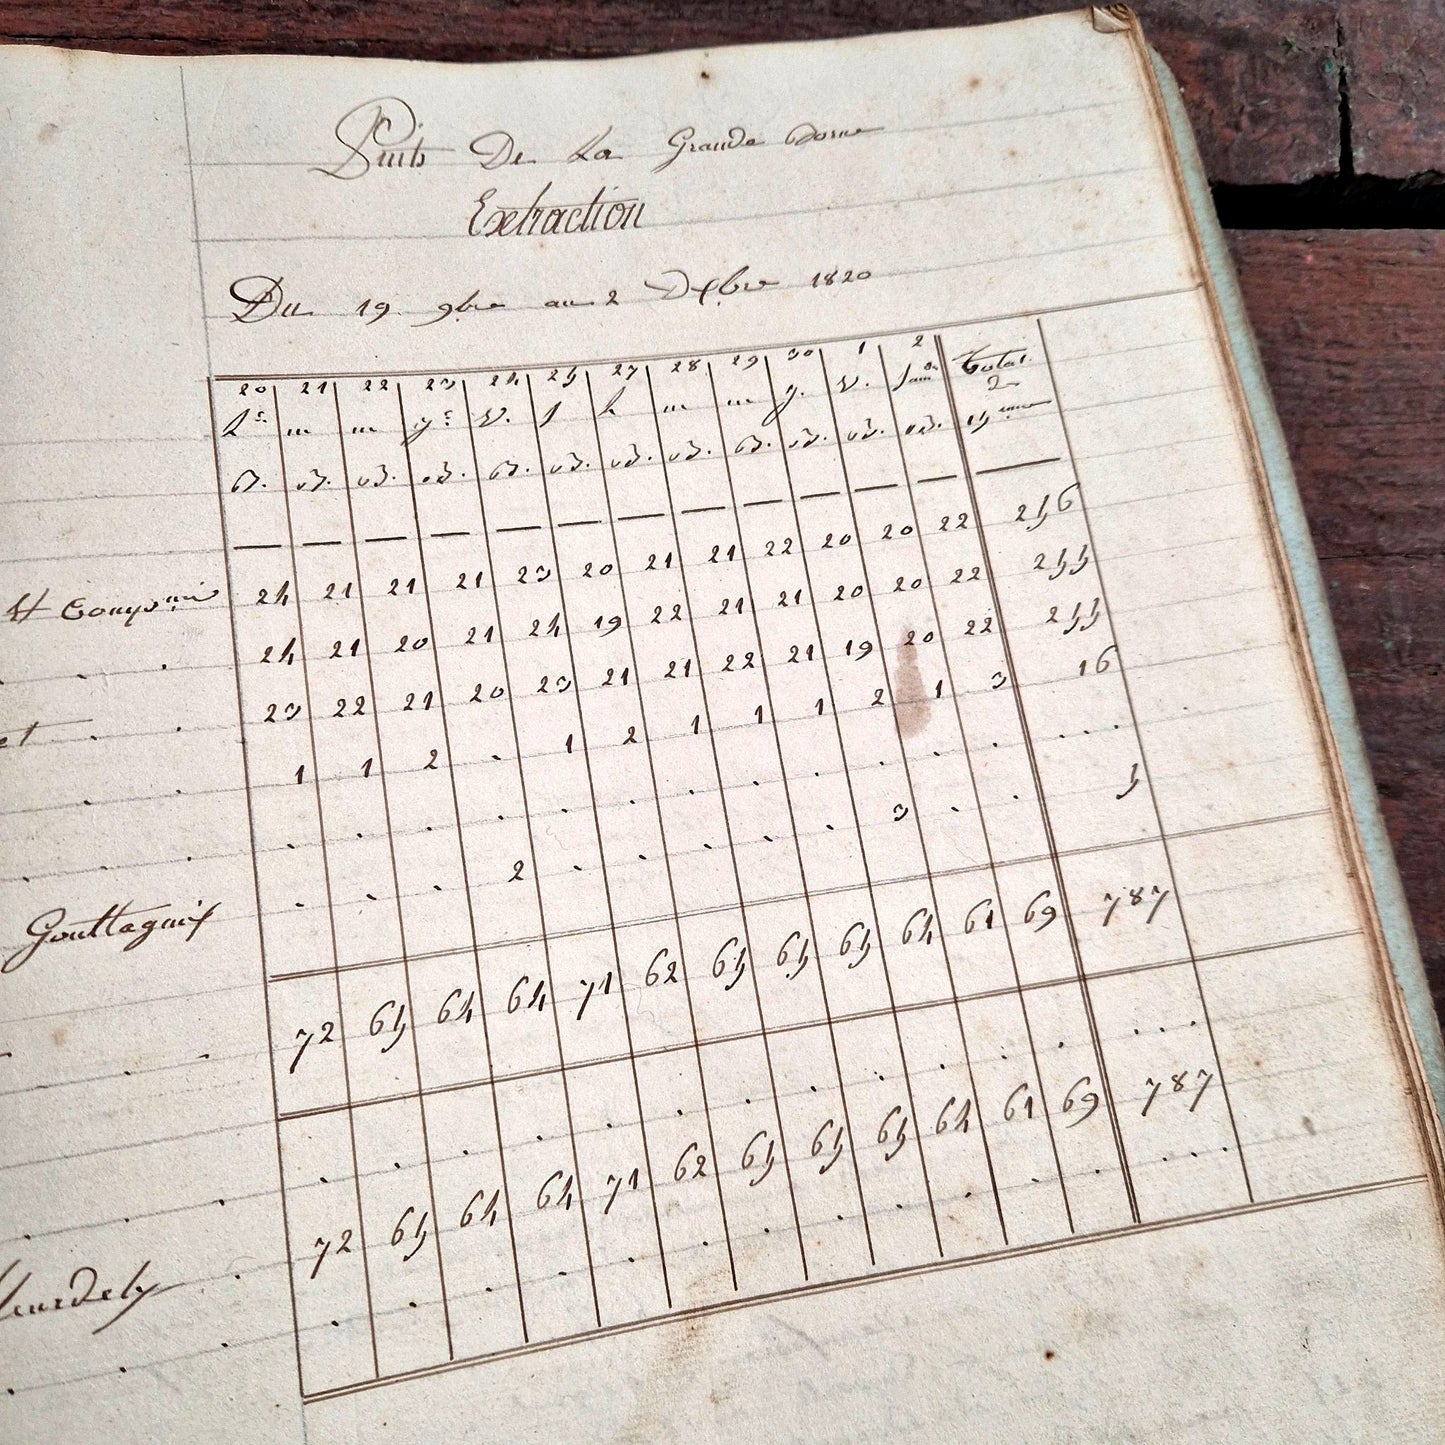 Puits De La Grande Borne
Extraction
Du 19 9bre au 2 Dxbre 1820
20 21 22 23 24 25 27 28 29 30 1 2 Total
L. m m j. V. s L m m j. V. Sam. 2
B. B. B. B. B. B. B. B. B. B. B. B. 15
24 21 21 21 23 20 21 21 22 20 20 22 256
24 21 20 21 24 19 22 21 21 20 20 22 255
23 22 21 20 23 21 21 22 21 19 20 22 255
et . . 1 1 2 . 1 2 1 1 1 2 1 3 16
. . . . . . . . . . . . . . .
Gouttagnix . . . 2 . . . . . 3 . . 5
72 65 64 64 71 62 65 65 65 64 61 69 787
. . . . . . . . . . . . . . .
72 65 64 64 71 62 65 65 65 64 61 69 787
. . . . . . . . . . . . . . .